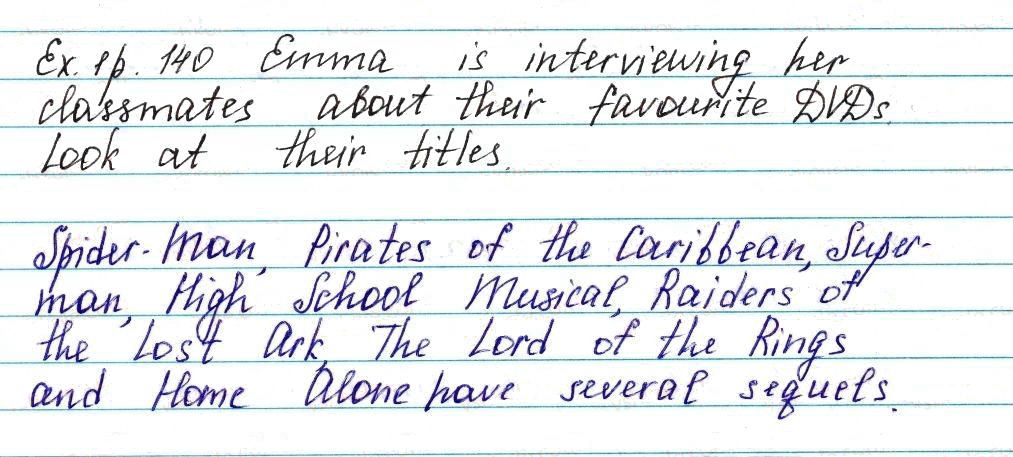 Ex. 1 p. 140 Emma is interviewing her
classmates about their favourite DVDs.
Look at their titles.
Spider-Man, Pirates of the Caribbean, Super-
man, High School Musical, Raiders of
the Lost Ark, The Lord of the Rings
and Home Alone have several sequels.